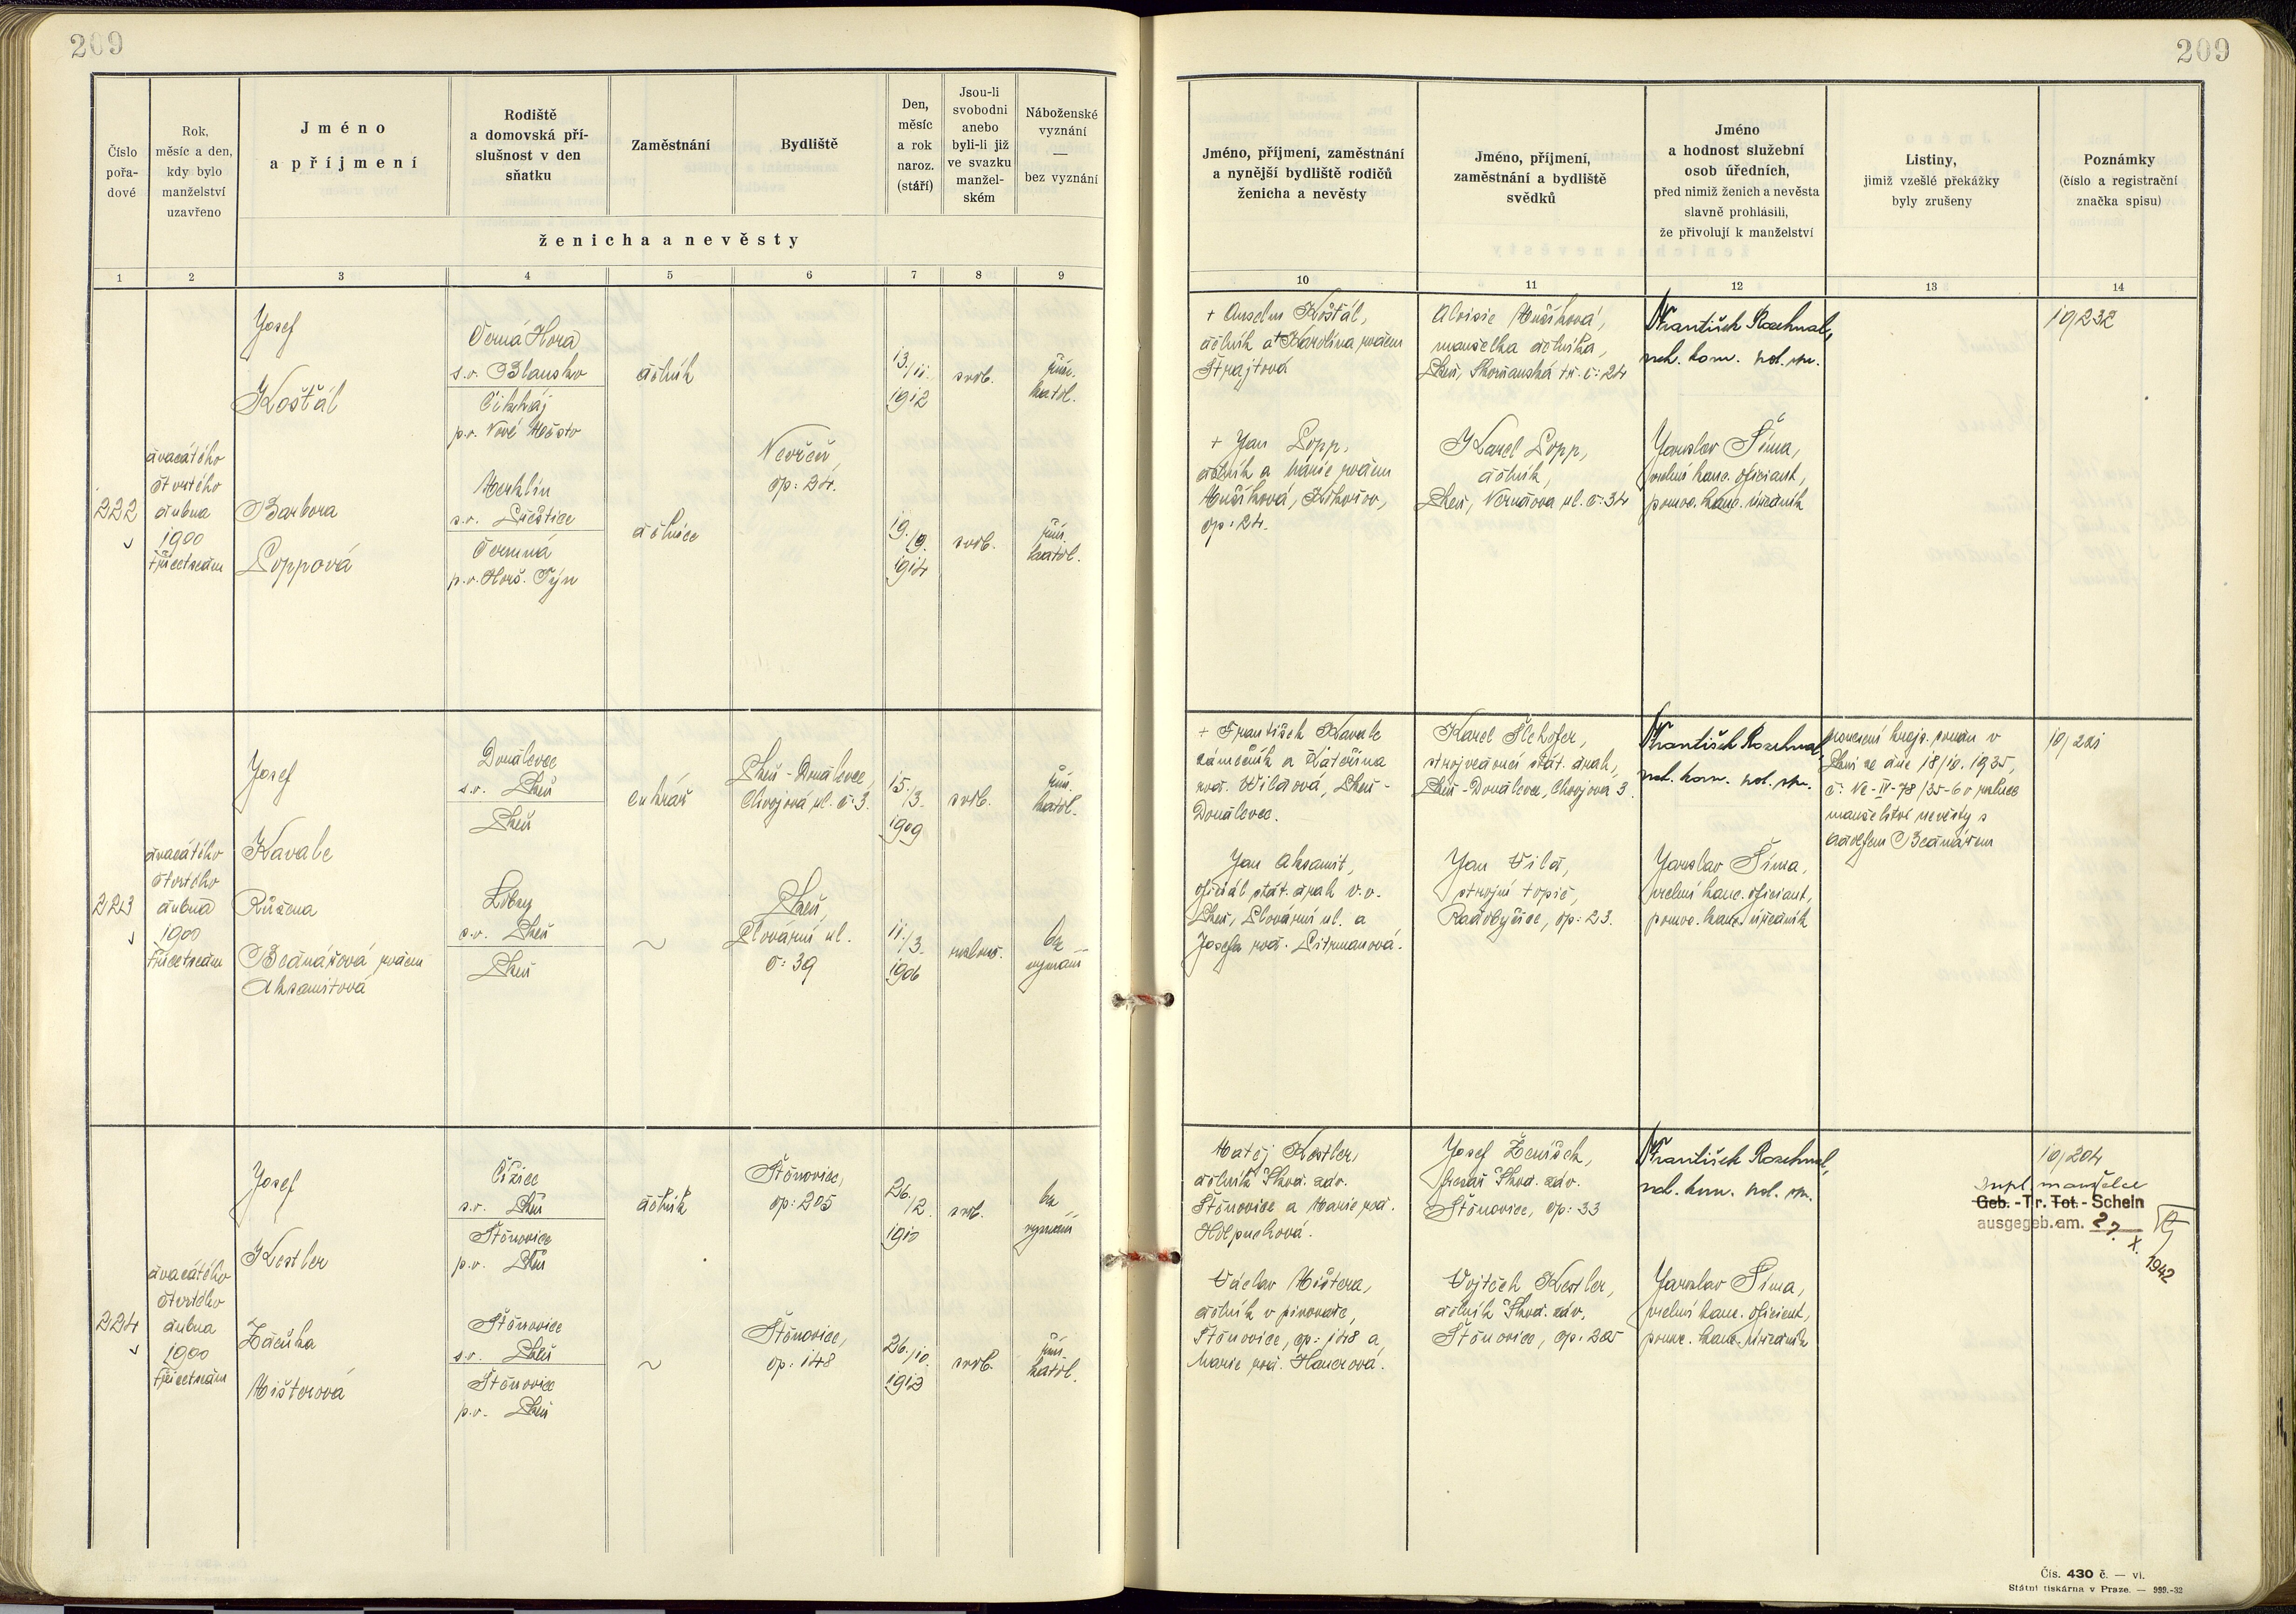 209
209
Číslo pořa-dové
Rok, měsíc a den, kdy bylo manželství uzavřeno
Jméno a příjmení
Rodiště a domovská pří-slušnost v den sňatku
Zaměstnání
Bydliště
Den, měsíc a rok naroz. (stáří)
Jsou-li svobodni anebo byli-li již ve svazku manžel-ském
Náboženské vyznání — bez vyznání
ženicha a nevěsty
Jméno, příjmení, zaměstnání a nynější bydliště rodičů ženicha a nevěsty
Jméno, příjmení, zaměstnání a bydliště svědků
Jméno a hodnost služební osob úředních, před nimiž ženich a nevěsta slavně prohlásili, že přivolují k manželství
Listiny, jimiž vzešlé překážky byly zrušeny
Poznámky (číslo a registrační značka spisu)
1 2 3 4 5 6 7 8 9
10 11 12 13 14
222
dvacátého
čtvrtého
dubna
1900
třicetsedm
Josef
Košťál
Černá Hora
s.o. Blansko
Cikháj
p.o. Nové Město
dělník
13./11.
1912
svob.
řím.
katol.
Barbora
Loppová
Merklín
s.o. Přeštice
p.o. Horš. Týn
dělnice
Nevřeň
čp: 24.
19./9.
1914
svob.
řím.
katol.
+ Anselm Košťál,
dělník a +Karolina rozem
Štrajtová
+ Jan Lopp,
dělník a Marie rozem
Mušíková,
čp: 24.
Aloisie Mušíková,
manželka dělníka,
Plzeň, Skvrňanská tř. č: 24
Karel Lopp,
dělník,
Plzeň, Nerudova ul. č: 34
František Rozehnal,
rad. kom. pol. spr.
Jaroslav Šíma,
vrchní kanc. oficiant,
pomoc. kanc. úředník
19232
223
dvacátého
čtvrtého
dubna
1900
třicetsedm
Josef
Kavale
Doudlevce
s.o. Plzeň
Plzeň
cukrář
Plzeň - Doudlevce,
Chvojová ul. č: 3.
15./3.
1909
svob.
řím.
katol.
Růžena
Bednářová rozem
Aksamitová
Lobzy
s.o. Plzeň
Plzeň
~
Plzeň,
Plovární ul.
č: 39
11./3.
1906
rozlouč.
bez
vyznání
+ František Kavale
zámečník a Kateřina
roz. Wildová, Plzeň -
Doudlevce.
Jan Aksamit,
oficiál stát. drah v.v.
Plzeň, Plovární ul. a
Josefa roz. Litrmanová.
Karel Šlehofer,
strojvedoucí stát. drah,
Plzeň - Doudlevce, Chvojová 3.
Jan Wild,
strojní topič,
Radobyčice, čp: 23.
František Rozehnal,
rad. kom. pol. spr.
Jaroslav Šíma,
vrchní kanc. oficiant,
pomoc. kanc. úředník
usnesení krajs. soudu v
Plzni ze dne 18/10. 1935,
č: Nc-IV-78/35-6 o rozluce
manželství nevěsty s
Adolfem Bednářem
19/221
224
dvacátého
čtvrtého
dubna
1900
třicetsedm
Josef
Kestler
Čižice
s.o. Plzeň
Štěnovice
p.o. Plzeň
dělník
Štěnovice,
čp: 205
26./2.
1910
svob.
bez
vyznání
Zdeňka
Mištorová
Štěnovice
s.o. Plzeň
Štěnovice
p.o. Plzeň
~
Štěnovice,
čp: 148
26./10.
1913
svob.
řím.
katol.
Matěj Kestler,
dělník Škod. záv.
Štěnovice a Marie roz.
Holpuchová.
Václav Mištera,
dělník v pivovaře,
Štěnovice, čp: 148 a
Marie roz. Hauerová.
Josef Ženíšek,
Škod. záv.
Štěnovice, čp: 33
Vojtěch Kestler,
dělník Škod. záv.
Štěnovice, čp: 205
František Rozehnal,
rad. kom. pol. spr.
Jaroslav Šíma,
vrchní kanc. oficiant,
pomoc. kanc. úředník
19/204
Dupl. manželce
Geb. - Tr. Tot. - Schein
ausgegeb. am.
X. 1942
Čís. 430 č. — vi.
Státní tiskárna v Praze. — 999.-32